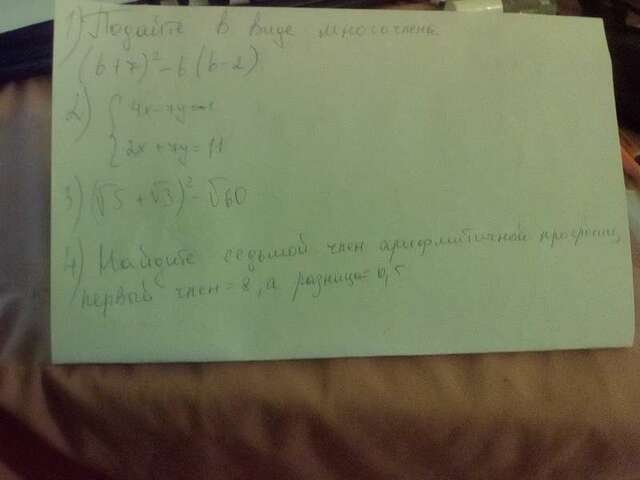 1) Подайте в виде многочлена
(b+7)² - b(b-2)
2) { 4x-7y=1
{ 2x+7y=11
3) (√5 + √3)² - √60
4) Найдите седьмой член арифмитичной
первый член=8, а разница=0,5